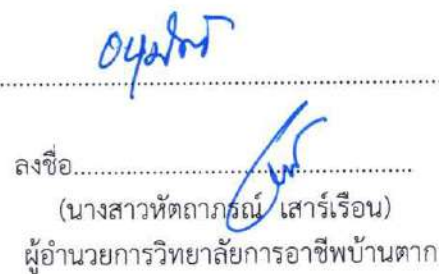 อนุมัติ
ลงชื่อ
(นางสาวหัตถาภรณ์ เสาร์เรือน)
ผู้อำนวยการวิทยาลัยการอาชีพบ้านตาก